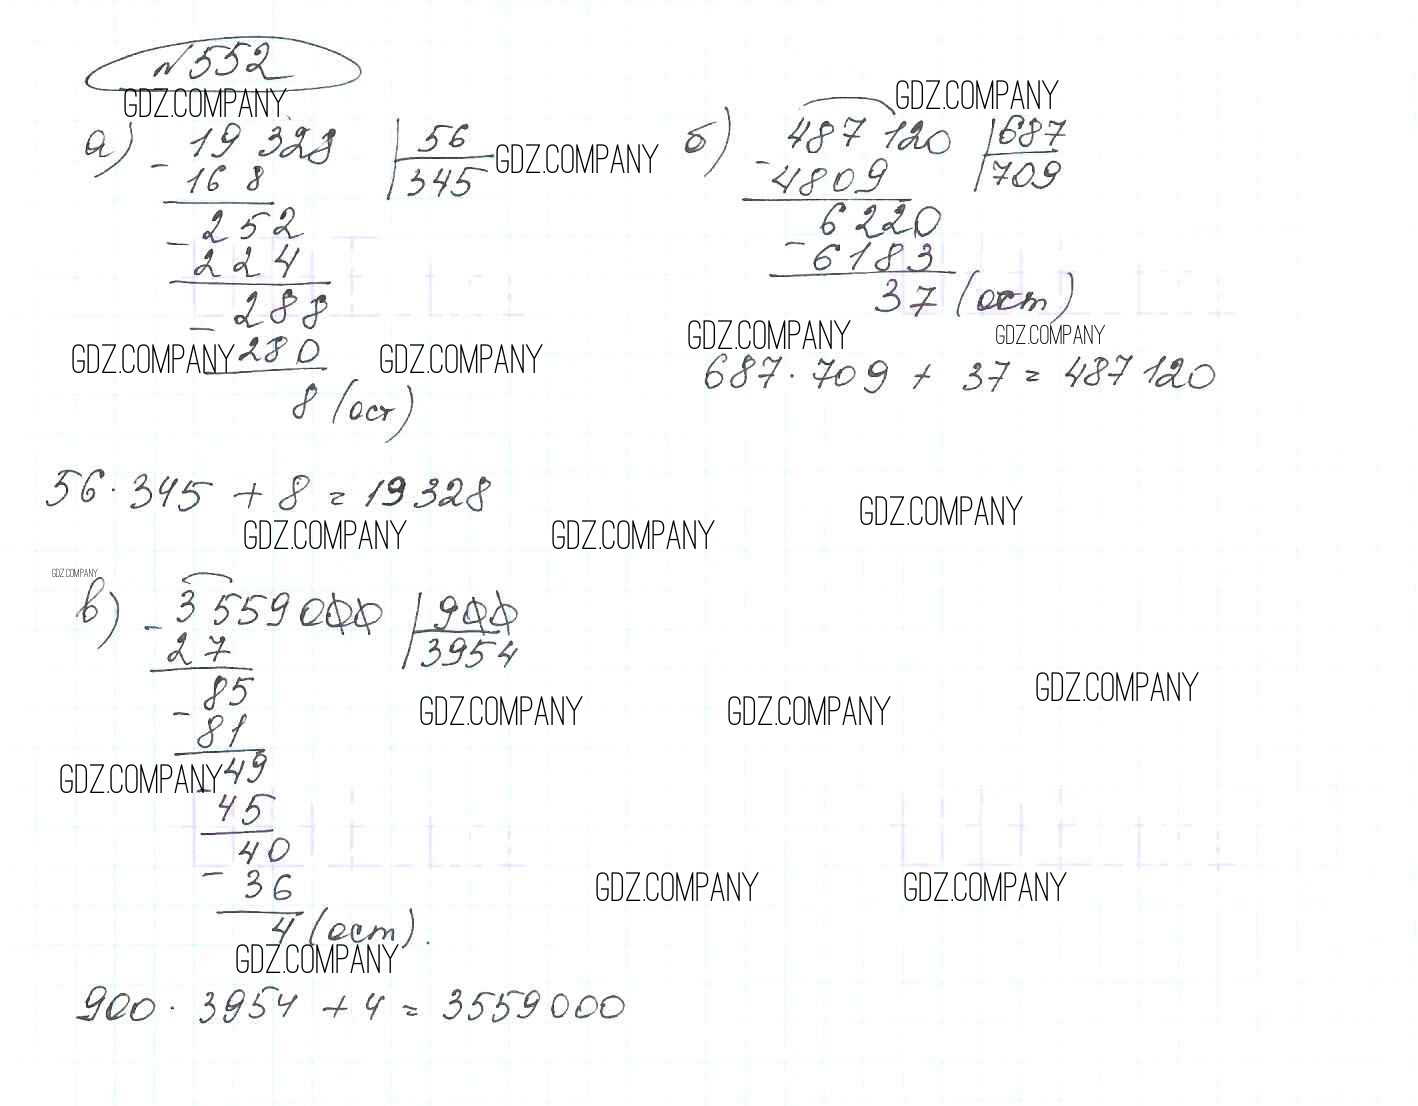 №552
GDZ.COMPANY
GDZ.COMPANY
а) 19 328 | 56
- 168 | 345
GDZ.COMPANY
- 252
224
- 288
280
8 (ост)
GDZ.COMPANY
GDZ.COMPANY
56 · 345 + 8 = 19328
б) 487 120 | 687
- 4809 | 709
6220
- 6183
37 (ост)
GDZ.COMPANY
GDZ.COMPANY
687 · 709 + 37 = 487 120
GDZ.COMPANY
GDZ.COMPANY
GDZ.COMPANY
GDZ.COMPANY
в) - 3 559 000 | 900
27 | 3954
- 85
81
GDZ.COMPANY
GDZ.COMPANY
GDZ.COMPANY
GDZ.COMPANY
- 49
45
40
- 36
4 (ост).
GDZ.COMPANY
GDZ.COMPANY
GDZ.COMPANY
900 · 3954 + 4 = 3559000